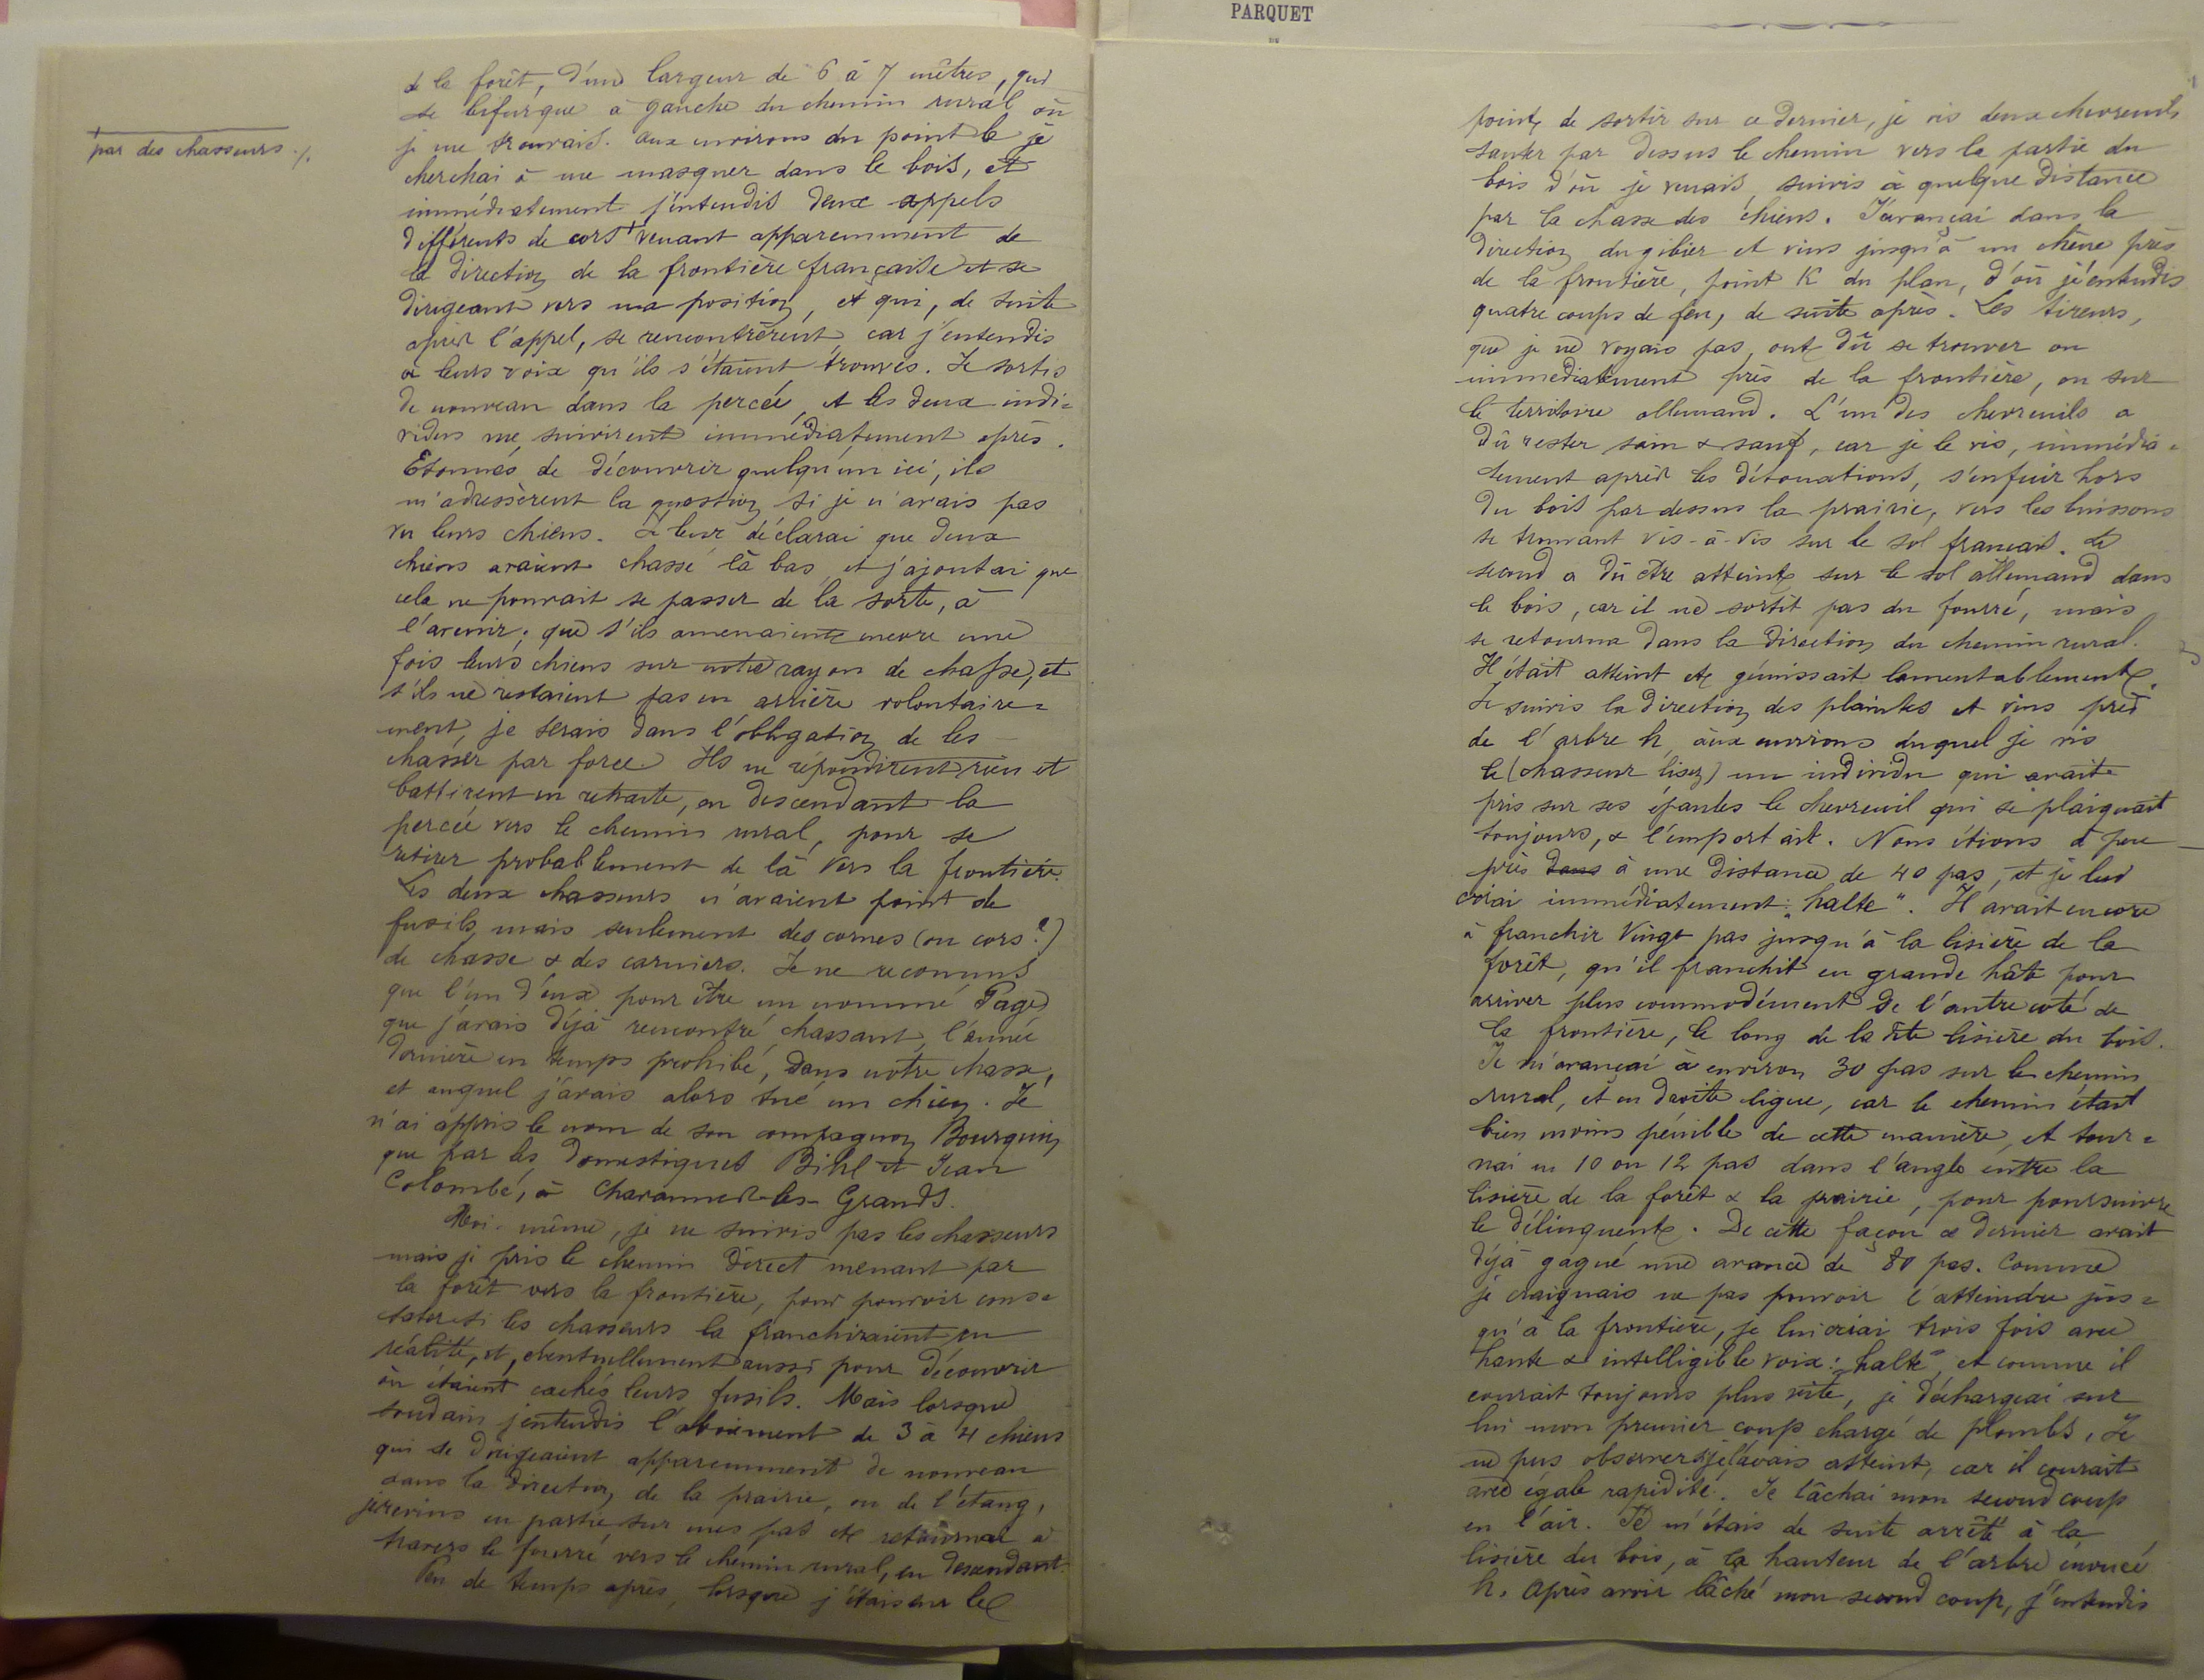 par des chasseurs ./.
de la forêt, d'une largeur de 6 à 7 mètres, qui
se bifurque à gauche du chemin rural où
je me trouvais. aux environs du point b je
cherchai à me masquer dans le bois, et
immédiatement j'entendis deux appels
différents de cors venant apparemment de
la direction de la frontière française et se
dirigeant vers ma position, et qui, de suite
après l'appel, se rencontrèrent, car j'entendis
à leurs voix qu'ils s'étaient trouvés. Je sortis
de nouveau dans la percée, et les deux indi=
vidus me suivirent immédiatement après.
Etonnés de découvrir quelqu'un ici, ils
m'adressèrent la question si je n'avais pas
vu leurs chiens. Je leur déclarai que deux
chiens avaient chassé là bas, et j'ajoutai que
cela ne pouvait se passer de la sorte, à
l'avenir; que s'ils amenaient encore une
fois leurs chiens sur notre rayon de chasse, et
s'ils ne restaient pas en arrière volontaire=
ment, je serais dans l'obligation de les
chasser par force. Ils ne répondirent rien et
battirent en retraite, en descendant la
percée vers le chemin rural, pour se
retirer probablement de là vers la frontière.
Les deux chasseurs n'avaient point de
fusils, mais seulement des cornes (ou cors?)
de chasse & des carniers. Je ne reconnus
que l'un d'eux pour être un nommé Page,
que j'avais déjà rencontré, chassant, l'année
dernière en temps prohibé, dans notre chasse,
et auquel j'avais alors tué un chien. Je
n'ai appris le nom de son compagnon Bourquin
que par les domestiques Bihl et Jean
Colombé, à Chavannes-les-Grands.
Moi-même, je ne suivis pas les chasseurs
mais je pris le chemin direct menant par
la forêt vers la frontière, pour pouvoir cons=
tater si les chasseurs la franchiraient en
réalité, et, éventuellement aussi pour découvrir
où étaient cachés leurs fusils. Mais lorsque
soudain j'entendis l'aboiement de 3 à 4 chiens
qui se dirigeaient apparemment de nouveau
dans la direction de la prairie, ou de l'étang,
je revins en partie sur mes pas et retournai à
travers le fourré vers le chemin rural, en descendant.
Peu de temps après, lorsque j'étais sur le
PARQUET
point de sortir sur ce dernier, je vis deux chevreuils
sauter par dessus le chemin vers la partie du
bois d'où je venais, suivis à quelque distance
par la chasse des chiens. J'avançai dans la
direction du gibier et vins jusqu'à un chêne près
de la frontière, point K du plan, d'où j'entendis
quatre coups de feu, de suite après. Les tireurs,
que je ne voyais pas, ont dû se trouver ou
immédiatement près de la frontière, ou sur
le territoire allemand. L'un des chevreuils a
dû rester sain & sauf, car je le vis, immédia=
tement après les détonations, s'enfuir hors
du bois par dessus la prairie, vers les buissons
se trouvant vis-à-vis sur le sol français. Le
second a dû être atteint sur le sol allemand dans
le bois, car il ne sortit pas du fourré, mais
se retourna dans la direction du chemin rural.
Il était atteint et gémissait lamentablement.
Je suivis la direction des plaintes et vins près
de l'arbre h, aux environs duquel je vis
le (chasseur lisez) un individu qui avait
pris sur ses épaules le chevreuil qui se plaignait
toujours, & l'emportait. Nous étions à peu
près dans à une distance de 40 pas, et je lui
criai immédiatement: „halte". Il avait encore
à franchir vingt pas jusqu'à la lisière de la
forêt, qu'il franchit en grande hâte pour
arriver plus commodément de l'autre côté de
la frontière, le long de la dte lisière du bois.
Je m'avançai à environ 30 pas sur le chemin
rural, et en droite ligne, car le chemin était
bien moins pénible de cette manière, et tour=
nai en 10 ou 12 pas dans l'angle entre la
lisière de la forêt & la prairie, pour poursuivre
le délinquent. De cette façon ce dernier avait
déjà gagné une avance de 80 pas. Comme
je craignais ne pas pouvoir l'atteindre jus=
qu'à la frontière, je lui criai trois fois avec
haute & intelligible voix: „halte", et comme il
courait toujours plus vite, je déchargeai sur
lui mon premier coup chargé de plombs. Je
ne pus observer si je l'avais atteint, car il courait
avec égale rapidité. Je lâchai mon second coup
en l'air. Je m'étais de suite arrêté à la
lisière du bois, à la hauteur de l'arbre énoncé
h. Après avoir lâché mon second coup, j'entendis